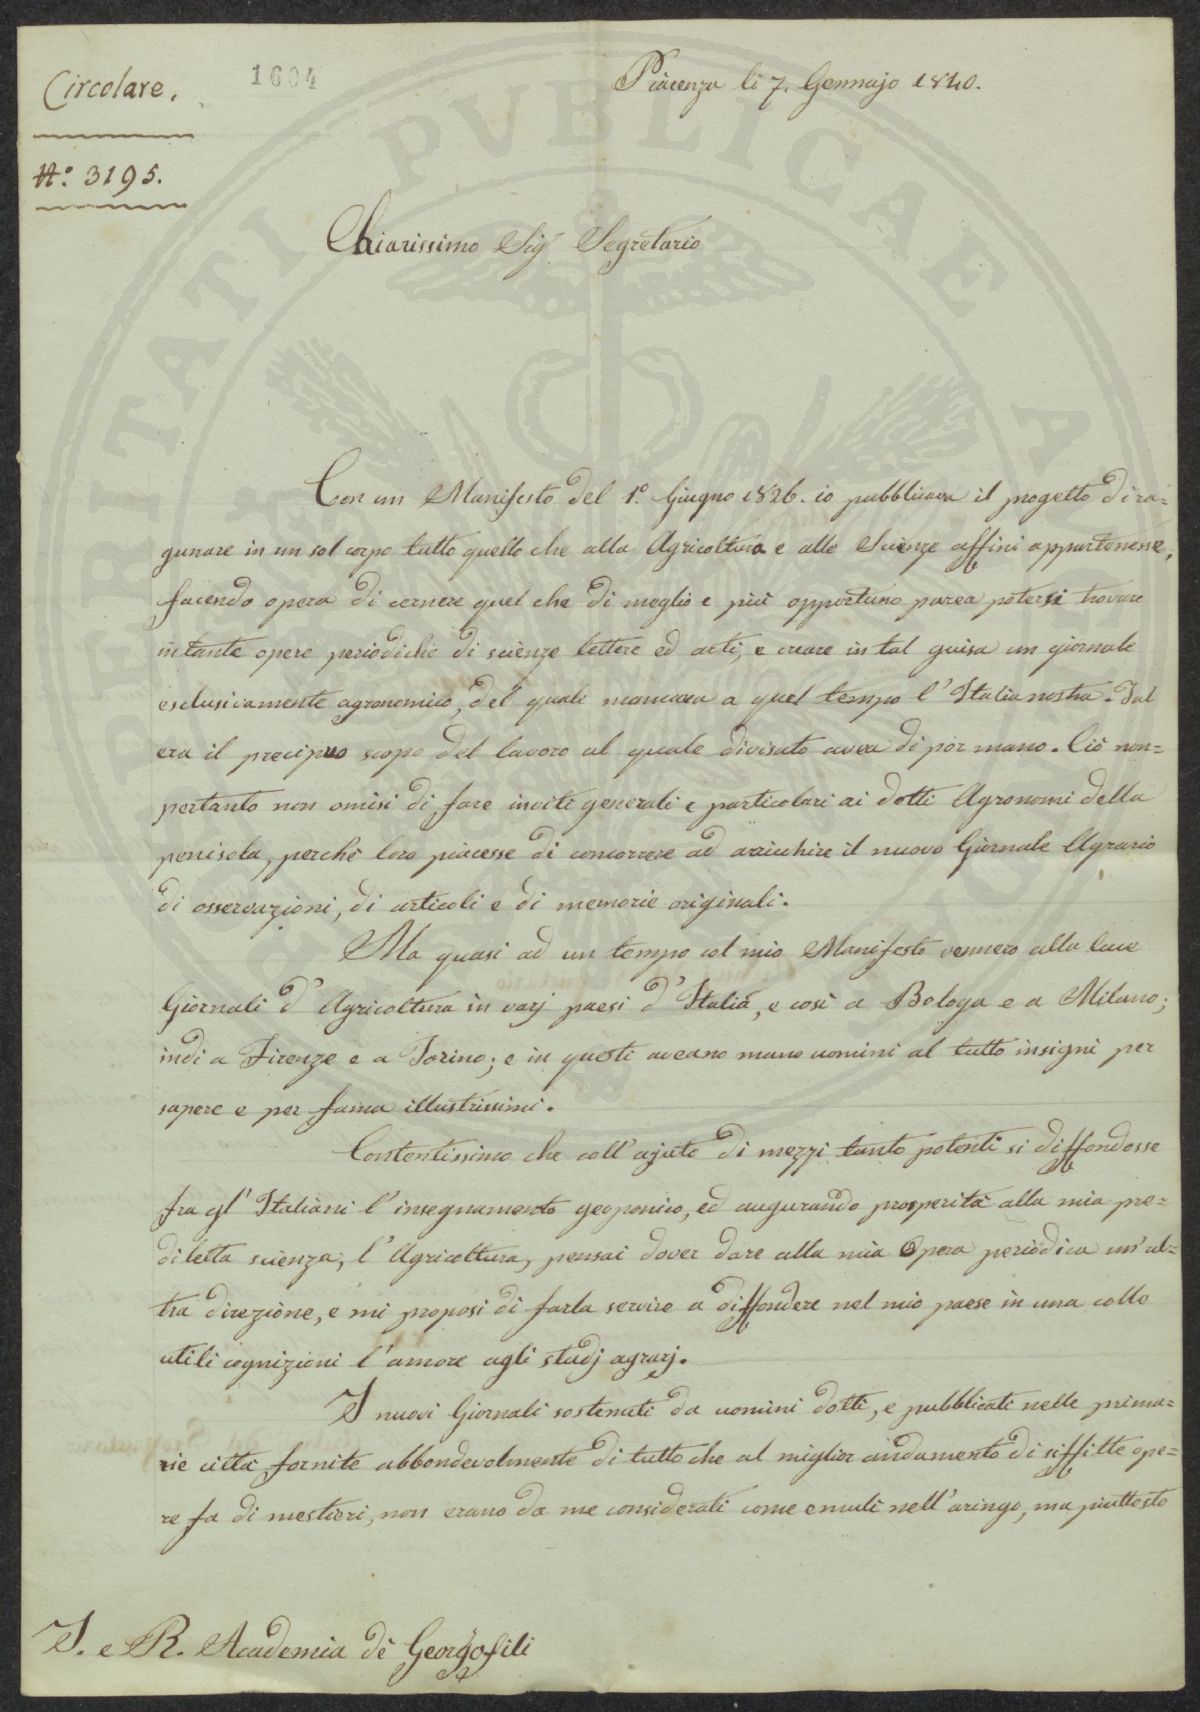 Circolare.
1604
Piacenza li 7. Gennajo 1840.
N.° 3195.
PROSPERITATI PVBLICAE AVGENDAE
Chiarissimo Sig.r Segretario
Con un Manifesto del 1.° Giugno 1826. io pubblicava il progetto di ra=
gunare in un sol corpo tutto quello che alla Agricoltura e alle Scienze affini appartenesse,
facendo opera di cernere quel che di meglio e più opportuno parea potersi trovare
in tante opere periodiche di scienze lettere ed arti, e creare in tal guisa un giornale
esclusivamente agronomico, del quale mancava a quel tempo l'Italia nostra. Tal
era il precipuo scopo del lavoro al quale divisato avea di por mano. Ciò non=
pertanto non omisi di fare inviti generali e particolari ai dotti Agronomi della
penisola, perchè loro piacesse di concorrere ad arricchire il nuovo Giornale Agrario
di osservazioni, di articoli e di memorie originali.
Ma quasi ad un tempo col mio Manifesto vennero alla luce
Giornali d'Agricoltura in varj paesi d'Italia, e così a Bologa e a Milano;
indi a Firenze e a Torino; e in questi aveano mano uomini al tutto insigni per
sapere e per fama illustrissimi.
Contentissimo che coll'ajuto di mezzi tanto potenti si diffondesse
fra gl'Italiani l'insegnamento geoponico, ed augurando prosperità alla mia pre=
diletta scienza, l'Agricoltura, pensai dover dare alla mia Opera periodica un'al=
tra direzione, e mi proposi di farla servire a diffondere nel mio paese in una colle
utili cognizioni l'amore agli studj agrarj.
I nuovi Giornali sostenuti da uomini dotti, e pubblicati nelle prima=
rie città fornite abbondevolmente di tutto che al miglior andamento di siffitte ope=
re fa di mestieri, non erano da me considerati come emuli nell'aringo, ma piuttosto
I. e R. Academia dè Georgofili